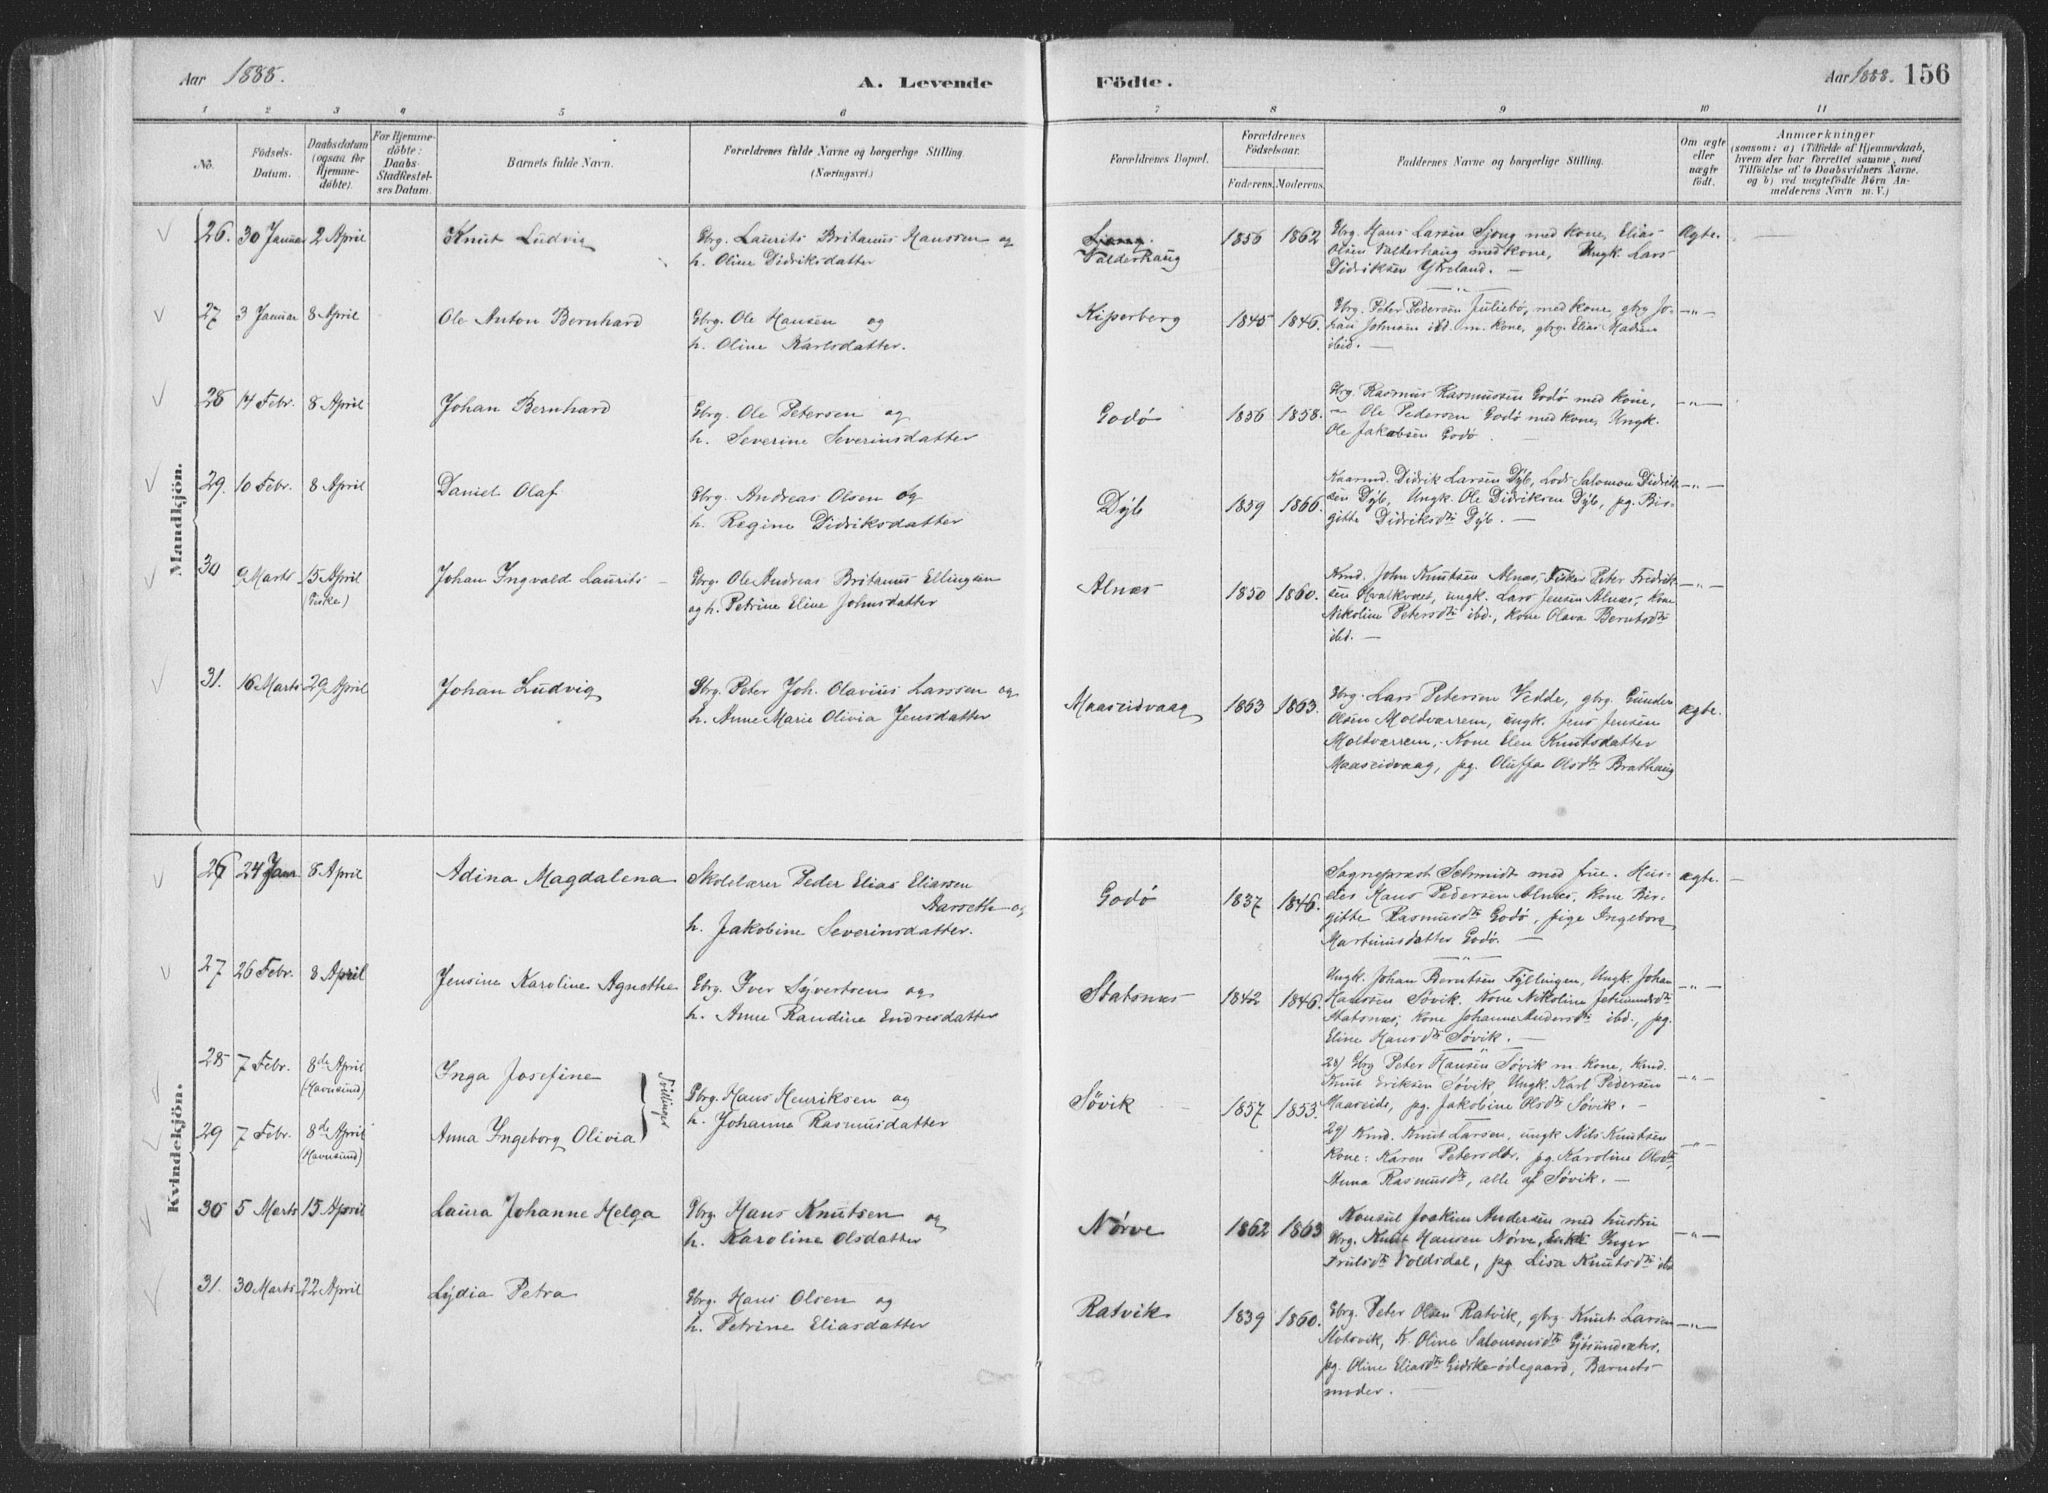 Aar 1888.
A. Levende
Födte.
Aar 1888. 156
1 2 3 4 5 6 7 8 9 10 11
No.
Födsels-
Datum.
Daabsdatum
(ogsaa for
Hjemme-
døbte).
For Hjemme-
døbte:
Daabs-
Stadfæstel-
ses Datum.
Barnets fulde Navn.
Forældrenes fulde Navne og borgerlige Stilling.
(Næringsvei.)
Forældrenes Bopæl.
Forældrenes
Födselsaar.
Faderens. Moderens.
Faddernes Navne og borgerlige Stilling.
Om ægte
eller
uægte
født.
Anmærkninger
(saasom: a) i Tilfælde af Hjemmedaab,
hvem der har forrettet samme, med
Tilføielse af to Daabsvidners Navne,
og b) ved uægtefødte Börn An-
melderens Navn m. V.)
Mandkjön.
26. 30 Januar 2 April
Knut Ludvig
Gbrg. Laurits Britanus Hanssen og
h. Oline Didriksdatter
Valderhaug
1856 1862
Gbrg. Hans Larsen Sjong med Kone, Elias
Olsen Valderhaug med Kone, Ungk. Lars
Didriksen Ytreland. —
Ægte. —
27 3 Januar 8 April
Ole Anton Bernhard
Gbrg. Ole Hansen og
h. Oline Karlsdatter.
Kiperberg
1845 1846.
Gbrg. Peter Pedersen Juliebø, med Kone, gbrg Jo-
han Johnsen ibd. m. Kone, gbrg. Elias Madsen
ibid. —
—"—
28 14 Febr. 8 April
Johan Bernhard
Gbrg. Ole Petersen og
h. Severine Severinsdatter
Godø
1856 1858.
Gbrg. Rasmus Rasmussen Godø med Kone,
— Ole Pedersen Godø med Kone, Ungk.
Ole Jakobsen Godø. —
—"—
29. 10 Febr. 8 April
Daniel Olaf
Gbrg. Andreas Olsen og
h. Regine Didriksdatter
Dyb
1859 1866.
Kaarmd. Didrik Larsen Dyb, Lods Salomon Didrik-
sen Dyb, Ungk. Ole Didriksen Dyb, pg. Bir-
gitte Didriksdtr Dyb. —
—"—
30 9 Marts 15 April
(Giske)
Johan Ingvald Laurits
Gbrg. Ole Andreas Britanus Ellingsen
og h. Petrine Eline Johnsdatter
Alnæs
1850 1860.
Kmd. John Knutsen Alnæs, Fisker Peter Fredrik-
sen Hvalkvæt, ungk. Lars Jensen Alnæs, Kone
Nikoline Petersdtr ibd., Kone Olava Berntsdtr
ibd. —
—"—
31. 16 Marts 29 April
Johan Ludvig
Gbrg. Peter Joh. Olavius Larssen og
h. Anne Marie Olivia Jensdatter
Maaseidvaag
1863 1863.
Gbrg. Lars Petersen Vedde, gbrg. Gunder
Olsen Moldværrem, ungk. Jens Jensen
Moldværrem, Kone Elen Knutsdatter
Maaseidvaag, pg. Oluffa Olsdtr Brathaug
ægte.
Kvindekjön.
26 24 Janr 8 April
Adina Magdalena
Skolelærer Peder Elias Eliassen
Aarseth og
h. Jakobine Severinsdatter.
Godø
1837 1846.
Sognepræst Schmidt med frue. Hus-
eier Hans Pedersen Alnæs, Kone Bir-
gitte Rasmusdtr Godø, pige Ingeborg
Martinusdatter Godø. —
ægte. —
27 26 Febr. 8 April
Jensine Karoline Agnethe
Gbrg. Iver Syvertsen og
h. Anne Randine Endresdatter
Statsnæs
1842 1846.
Ungk. Johan Berntsen Fyllingen, Ungk. Johan
Hanssen Søvik. Kone Nikoline Jetmundsdtr
Statsnæs, Kone Johanne Andersdtr ibd., pg.
Eline Hansdtr Søvik. —
—"—
28 7 Febr. 8de April
(Havnsund)
Inga Josefine
Tvillinger
Gbrg. Hans Henriksen og
h. Johanne Rasmusdatter
Søvik
1857 1853.
28) Gbrg Peter Hansen Søvik m. Kone, Kmd.
Knut Eriksen Søvik, Ungk. Karl Pedersen
Maaseide, pg. Jakobine Olsdtr Søvik. —
—"—
29 7 Febr. 8de April
(Havnsund)
Anna Ingeborg Olivia
29) Kmd. Knut Larsen, ungk Nils Knutsen
Kone: Karen Petersdtr. pg. Karoline Olsdtr,
Anna Rasmusdtr, alle af Søvik. —
—"—
30 5 Marts 15 April
Laura Johanne Helga
Gbrg Hans Knutsen og
h. Karoline Olsdatter
Nørve
1862 1863
Konsul Joakim Andersen med hustru
Gbrg. Knut Hansen Nørve, Enke Inger
Trulsdtr Voldsdal, pg. Lisa Knutsdtr ibd
—"—
31. 30 Marts 22 April
Lydia Petra
Gbrg. Hans Olsen og
h. Petrine Eliasdatter
Ratvik
1839 1860.
Gbrg. Peter Olsen Ratvik, gbrg. Knut Larsen
Molsvik, K. Oline Salomonsdtr Gjøsundsæter,
pg. Oline Eliasdtr Giskeødegaard, Barnets
moder. —
—"—